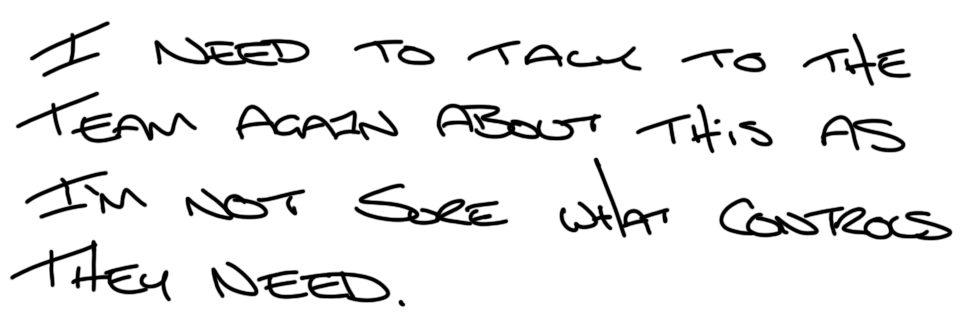 I NEED TO TALK TO THE
TEAM AGAIN ABOUT THIS AS
I'M NOT SURE WHAT CONTROLS
THEY NEED.